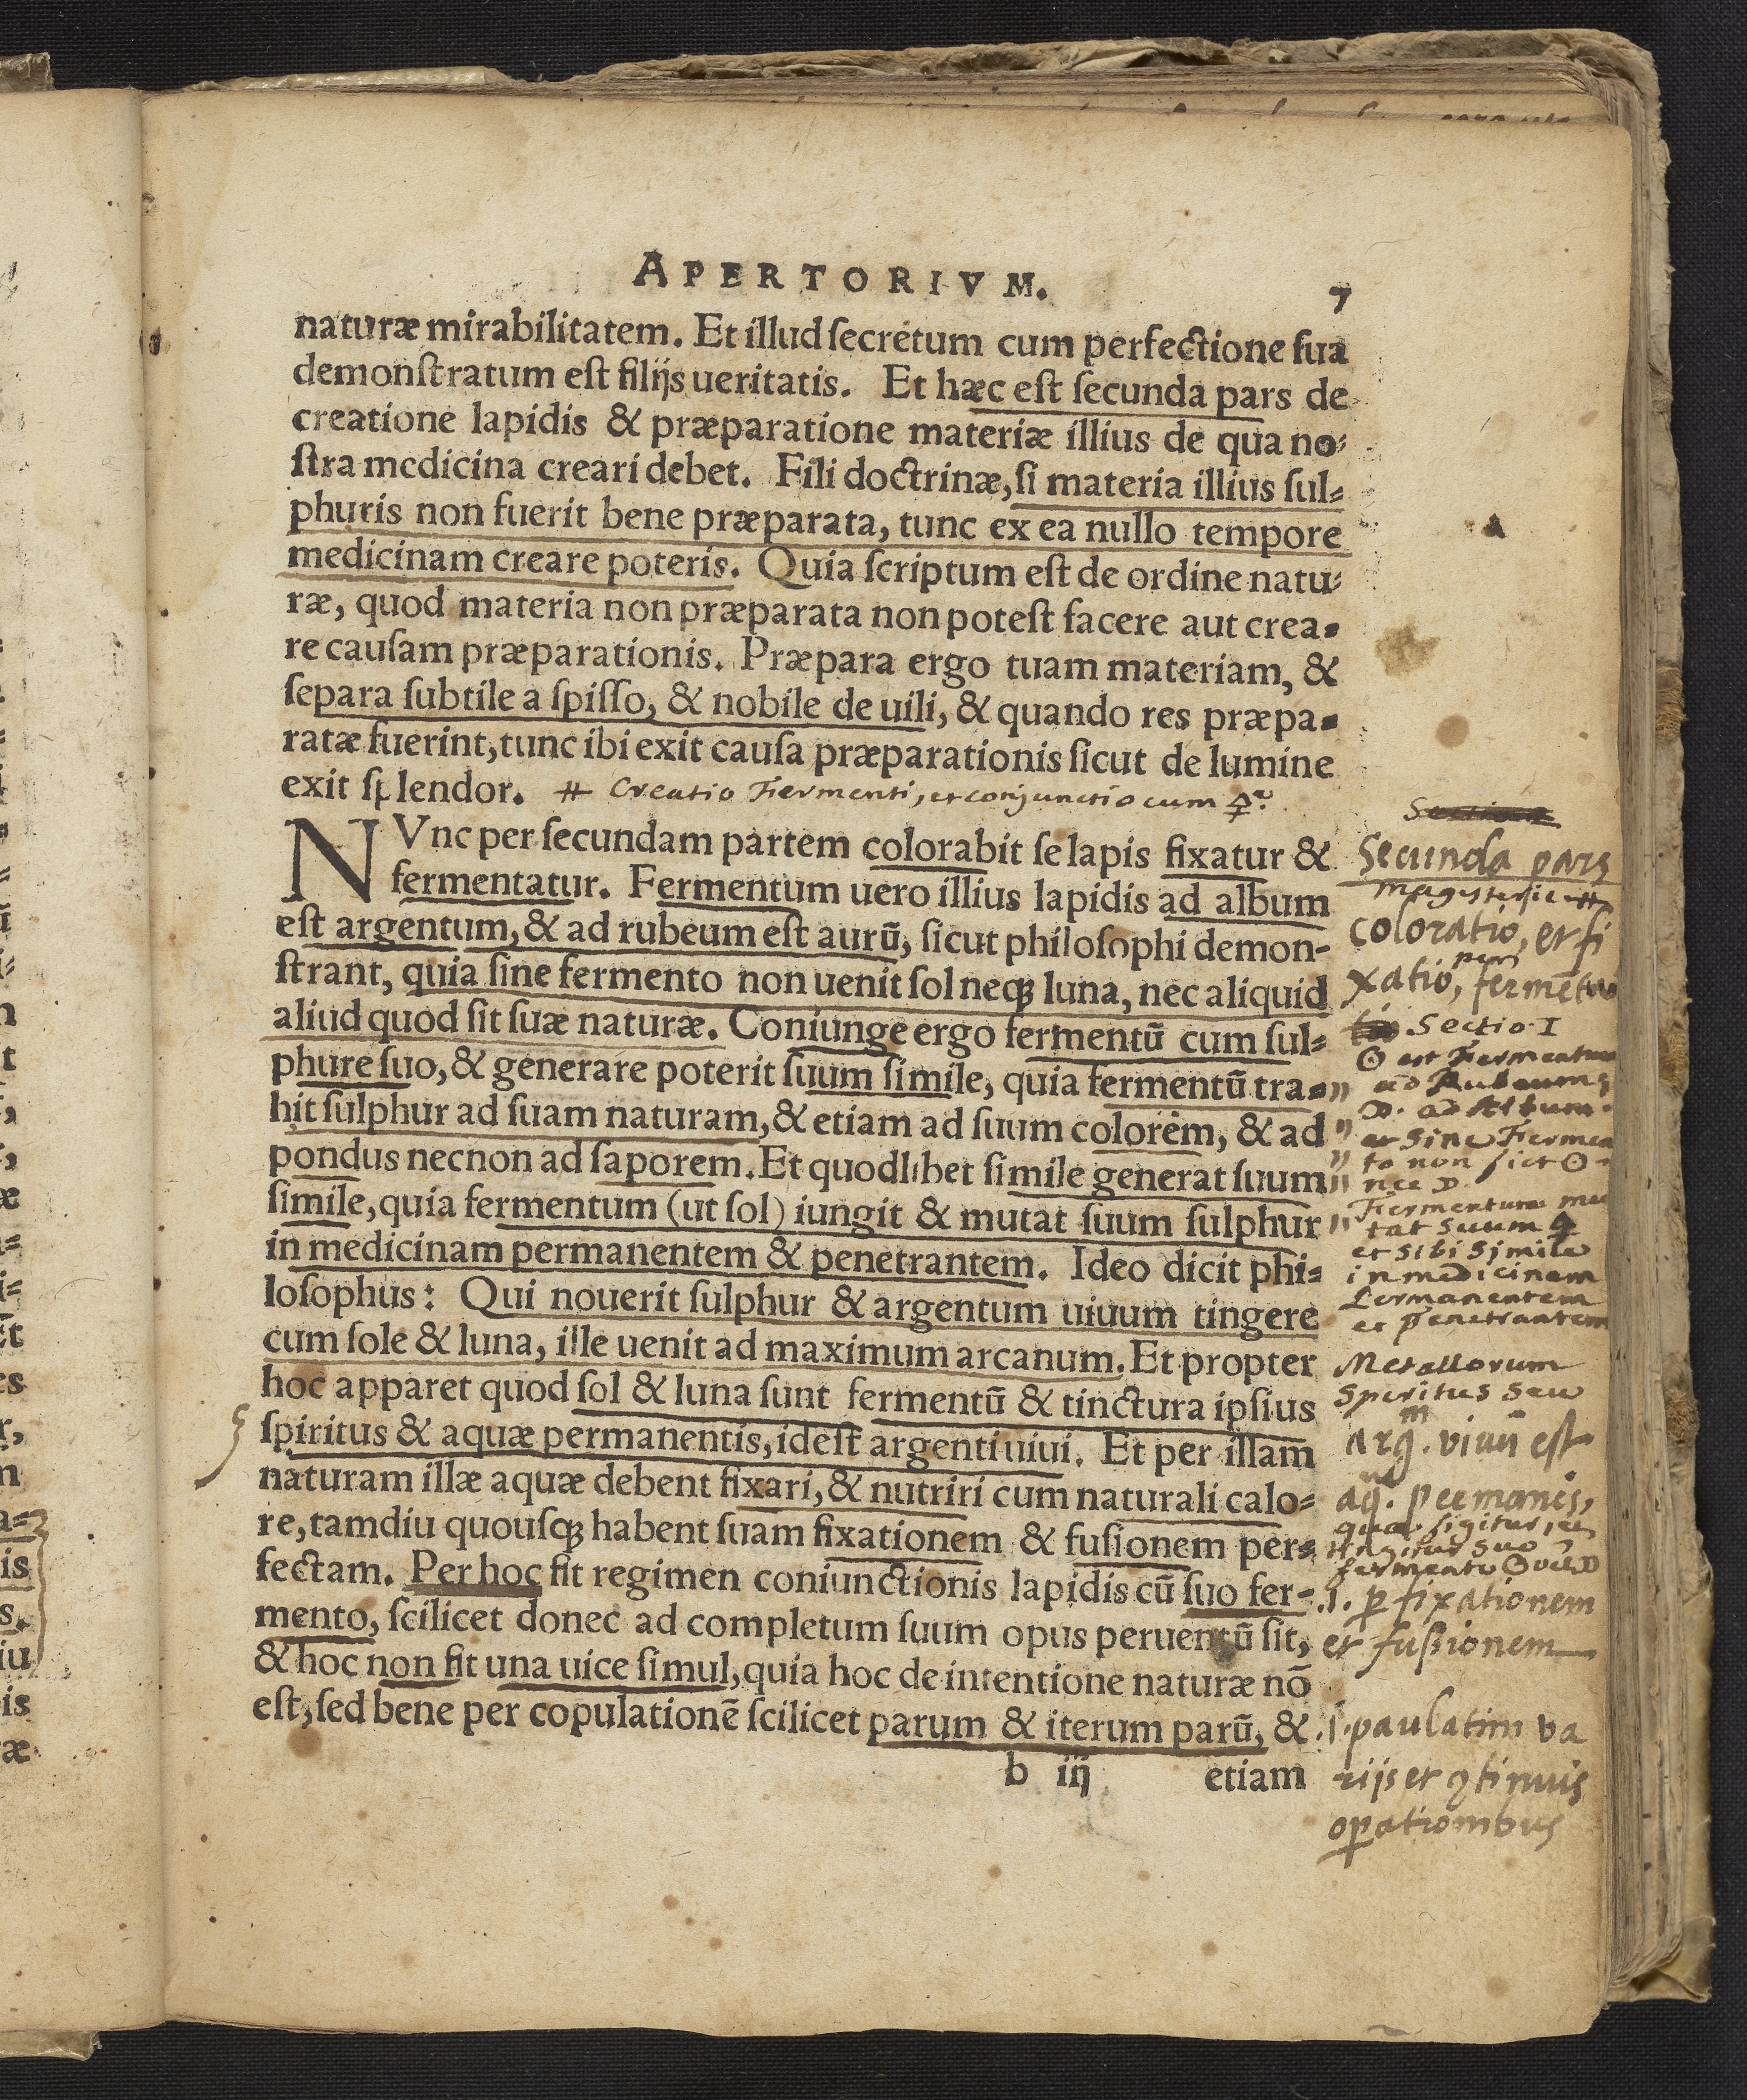 APERTORIVM. 7
naturæ mirabilitatem. Et illud ſecretum cum perfectione ſua
demonſtratum eſt filijs ueritatis. Et hæc eſt ſecunda pars de
creatione lapidis & præparatione materiæ illius de qua no-
ſtra medicina creari debet. Fili doctrinæ, ſi materia illius ſul-
phuris non fuerit bene præparata, tunc ex ea nullo tempore
medicinam creare poteris. Quia ſcriptum eſt de ordine natu-
ræ, quod materia non præparata non poteſt facere aut crea-
re cauſam præparationis. Præpara ergo tuam materiam, &
ſepara ſubtile a ſpiſſo, & nobile de uili, & quando res præpa-
ratæ fuerint, tunc ibi exit cauſa præparationis ſicut de lumine
exit ſplendor. # Creatio Fermenti, et conjunctio cum
NVnc per ſecundam partem colorabit ſe lapis fixatur &
fermentatur. Fermentum uero illius lapidis ad album
eſt argentum, & ad rubeum eſt aurū, ſicut philoſophi demon-
ſtrant, quia ſine fermento non uenit ſol neqꝫ luna, nec aliquid
aliud quod ſit ſuæ naturæ. Coniunge ergo fermentū cum ſul-
phure ſuo, & generare poterit ſuum ſimile, quia fermentū tra-
hit ſulphur ad ſuam naturam, & etiam ad ſuum colorem, & ad
pondus necnon ad ſaporem. Et quodlibet ſimile generat ſuum
ſimile, quia fermentum (ut ſol) iungit & mutat ſuum ſulphur
in medicinam permanentem & penetrantem. Ideo dicit phi-
loſophus: Qui nouerit ſulphur & argentum uiuum tingere
cum ſole & luna, ille uenit ad maximum arcanum. Et propter
hoc apparet quod ſol & luna ſunt fermentū & tinctura ipſius
ſpiritus & aquæ permanentis, ideſt argenti uiui. Et per illam
naturam illæ aquæ debent fixari, & nutriri cum naturali calo-
re, tamdiu quouſqꝫ habent ſuam fixationem & fuſionem per-
fectam. Per hoc fit regimen coniunctionis lapidis cū ſuo fer-
mento, ſcilicet donec ad completum ſuum opus peruentū ſit,
& hoc non fit una uice ſimul, quia hoc de intentione naturæ nō
eſt, ſed bene per copulationē ſcilicet parum & iterum parū, &
b iij etiam
Secunda pars
magisterii #
coloratio, et fi
xatio,
Sectio I
☉ est Fermentum
ad Rubeum,
☽. ad Album.
et sine Fermen
to non fiet ☉.
nec ☽.
Fermentum mu
tat suum 🜍
et sibi simile
in medicinam
permanentem
et penetrantem
Metallorum
Speritus seu
arg. viuū est
aq. permanēs,
quæ figitur, et
tingitur suo
fermento ☉ vel ☽
.i. ꝑ fixationem
et fußionem
.i. paulatim va
rijs et ꝯtinuis
oꝑationibus